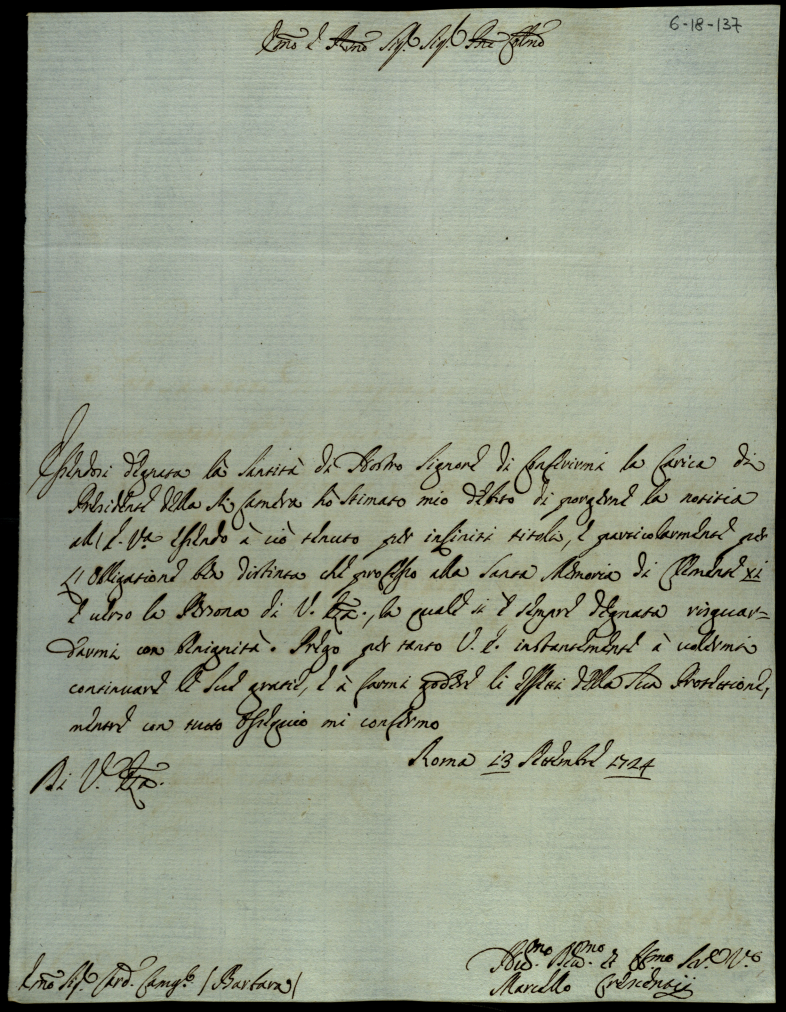 6-18-137
Emo e Rmo Sig.r Sig.r Pne Colmo
Essendosi degnata la Santità di Nostro Signore di conferirmi la Carica di
Presidente della R. Camera hò stimato mio debito di porgerne la notitia
all' E. Va essendo à ciò tenuto per infiniti titoli, e particolarmente per
l'obligatione ben distinta che professo alla Santa Memoria di Clemente XI
e verso la Persona di V. Eza., la quale si è sempre degnata risguar=
darmi con benignità. Prego per tanto V. E. instantemente à volermi
continuare le sue gratie, e à farmi godere li effetti della sua Protettione,
mentre con tutto ossequio mi confermo
Roma 13 Settembre 1724
Di V. Eza.
Emo Sig.r Card. Camg.o (Barbara)
Marcello Crescentij